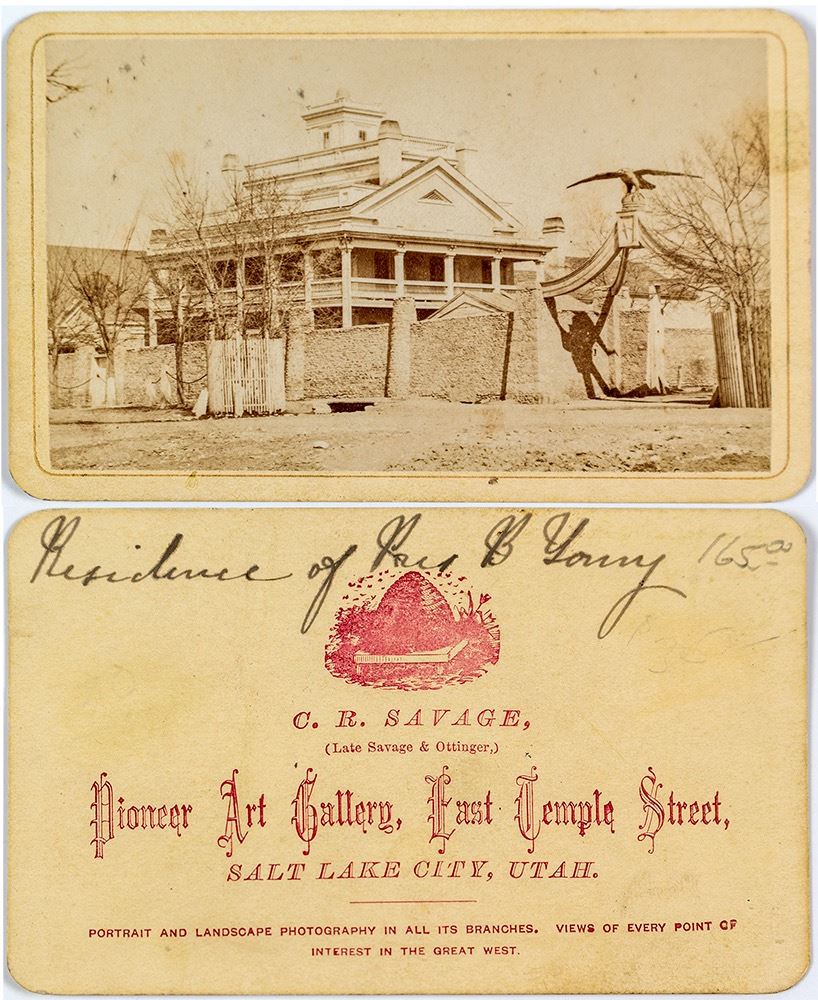 Residence of Pres B Young 165.00
C. R. SAVAGE,
(Late Savage & Ottinger,)
Pioneer Art Gallery, East Temple Street,
SALT LAKE CITY, UTAH.
PORTRAIT AND LANDSCAPE PHOTOGRAPHY IN ALL ITS BRANCHES. VIEWS OF EVERY POINT OF
INTEREST IN THE GREAT WEST.